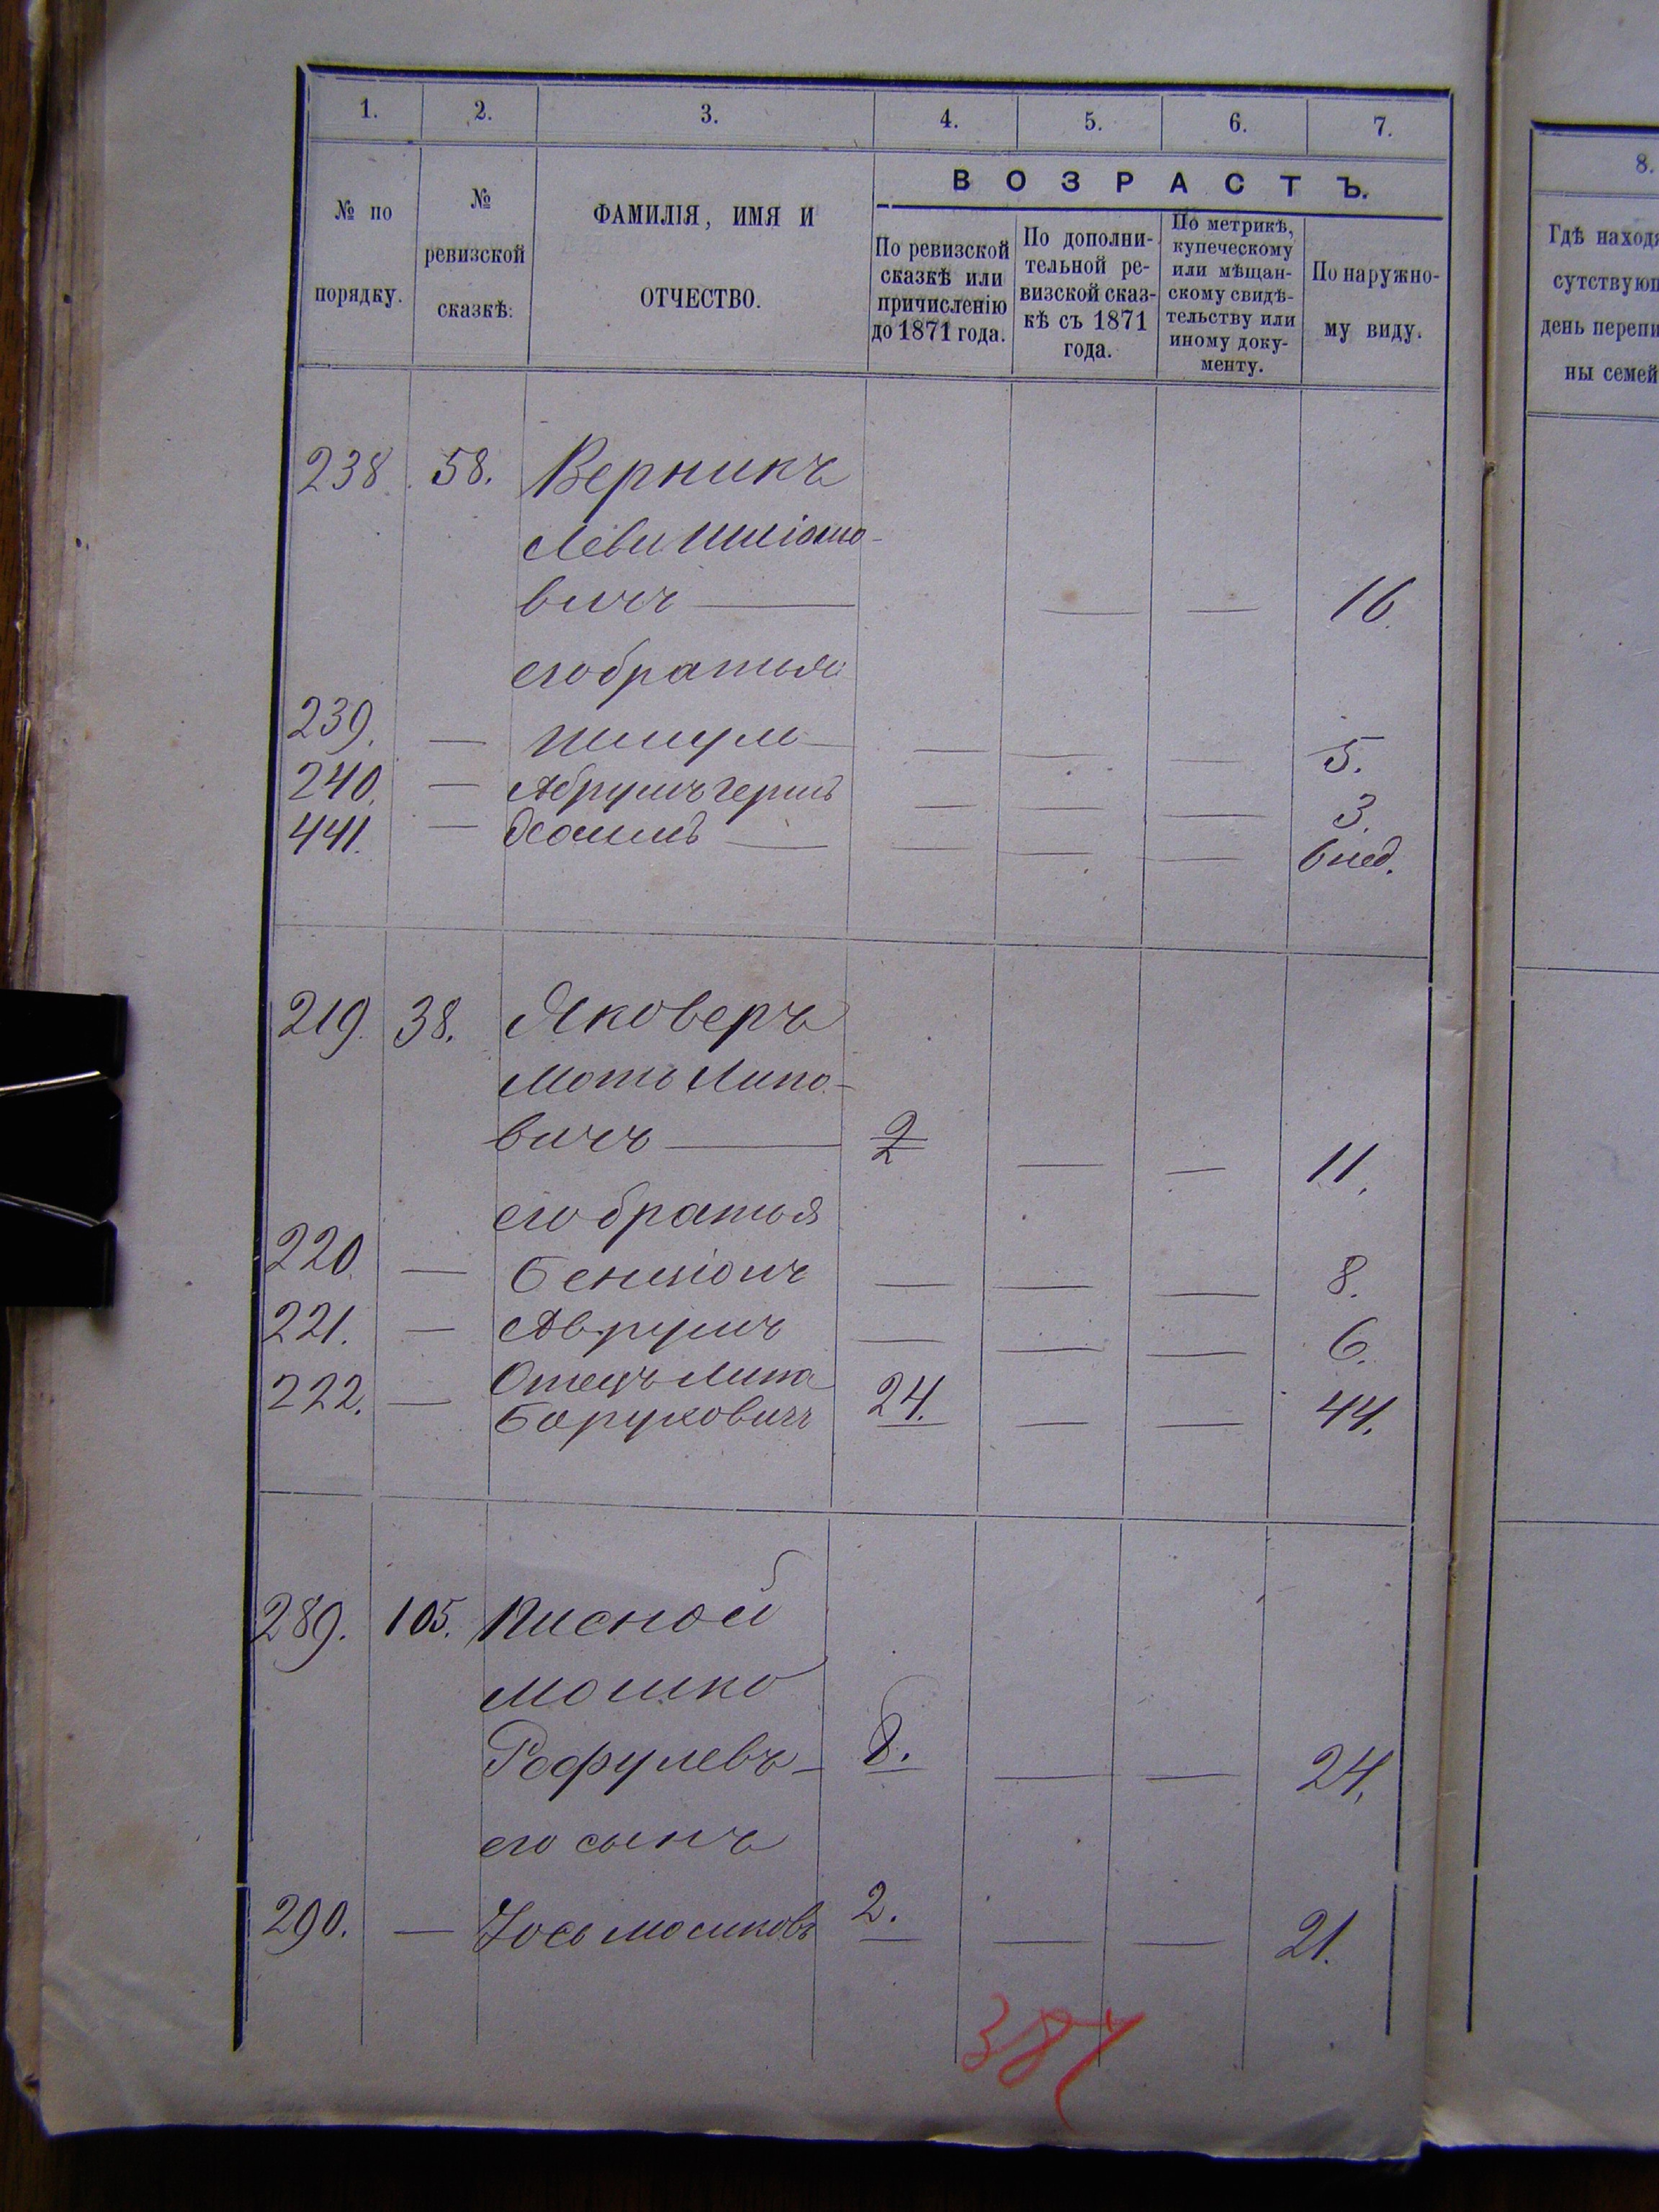 1. 2. 3. 4. 5. 6. 7.
№ по порядку.
№ ревизской сказкѣ:
ФАМИЛІЯ, ИМЯ И ОТЧЕСТВО.
ВОЗРАСТЪ.
По ревизской сказкѣ или причисленію до 1871 года.
По дополнительной ревизской сказкѣ съ 1871 года.
По метрикѣ, купеческому или мѣщанскому свидѣтельству или иному документу.
По наружному виду.
238 58. Верникъ
Леви
вичъ — — — 16.
его братья
239. — — — — 5.
240. — Абрумъ Гершъ — — — 3.
441. — — — — — 6 нед.
219. 38. Яковеръ
Моть Липо-
вичъ — 2 — — 11.
его братья
220. — Бенціонъ — — — 8.
221. — Аврумъ — — — 6.
222. — Отецъ Липа
Боруховичъ 24. — — 44.
289. 105. Писной
Мошко
Рафулевъ — 8. — — 24.
его сынъ
290. — Іось Мошковъ 2. — — 21.
387
8.
Гдѣ находя
сутствующ
день перепи
ны семей